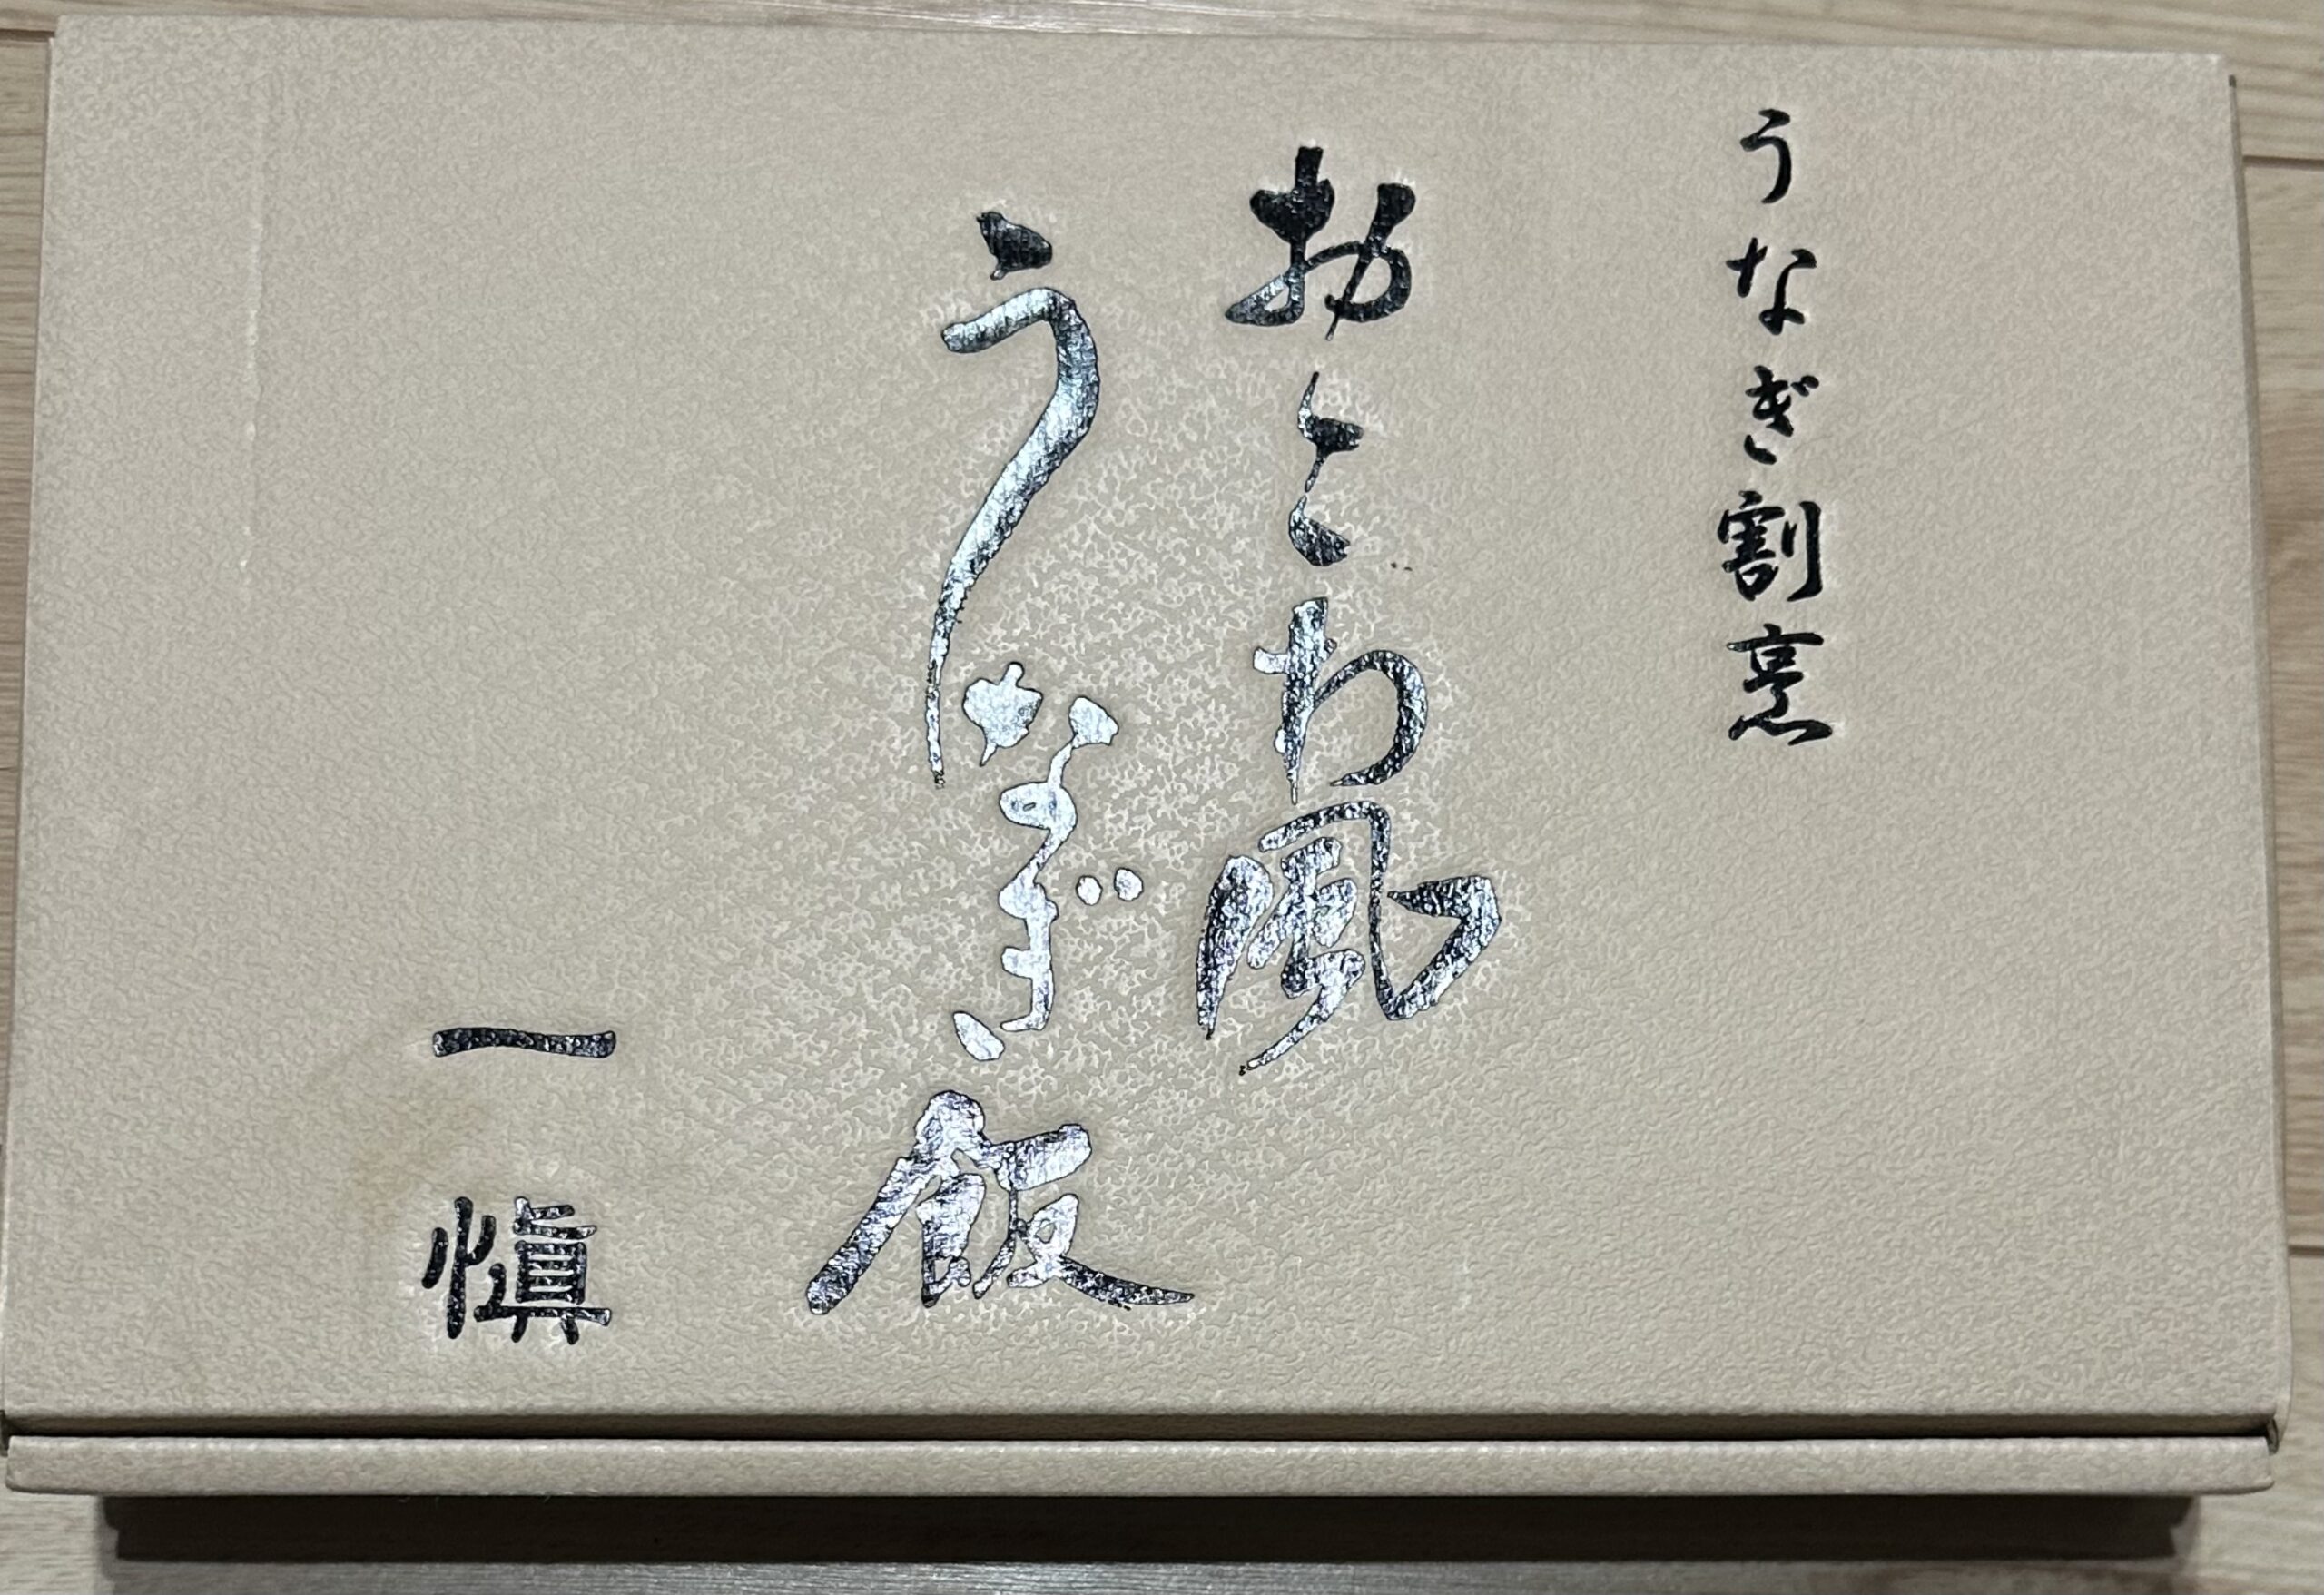 うなぎ割烹
おとわ風
うなぎ飯
一愼